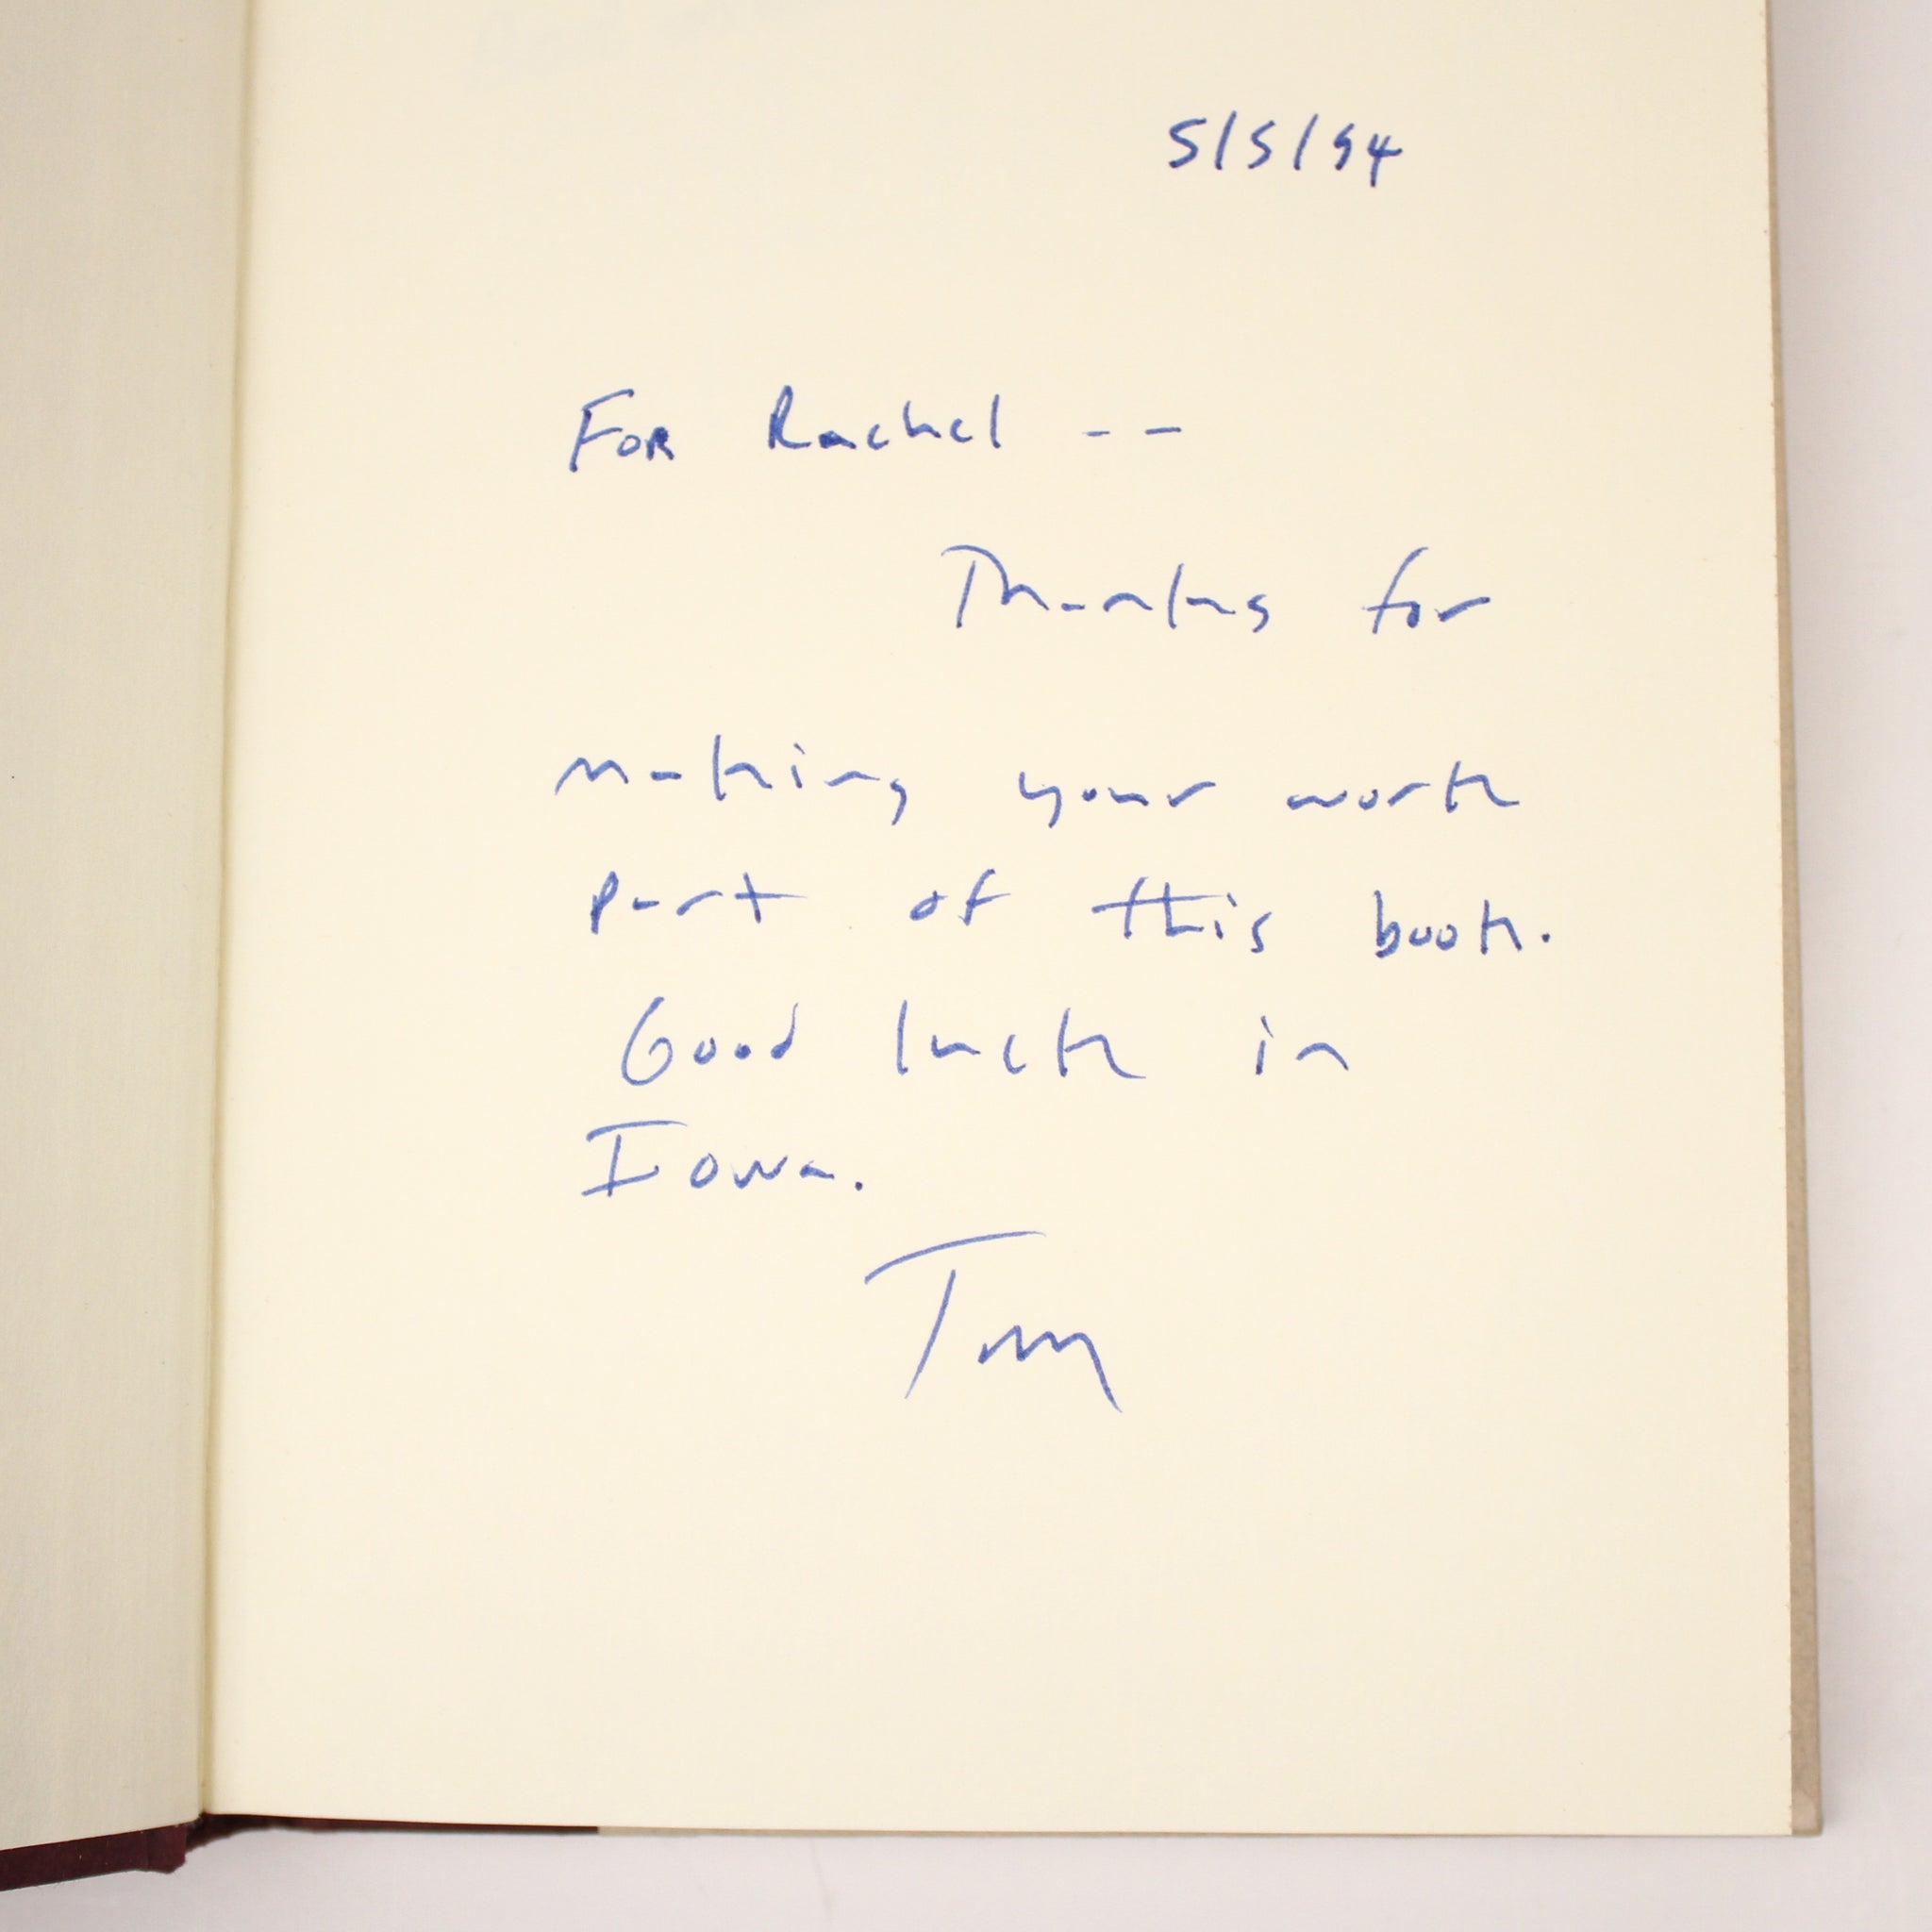 5/5/94
For Rachel --
Thanks for
making your work
part of this book.
Good luck in
Iowa.
Tom